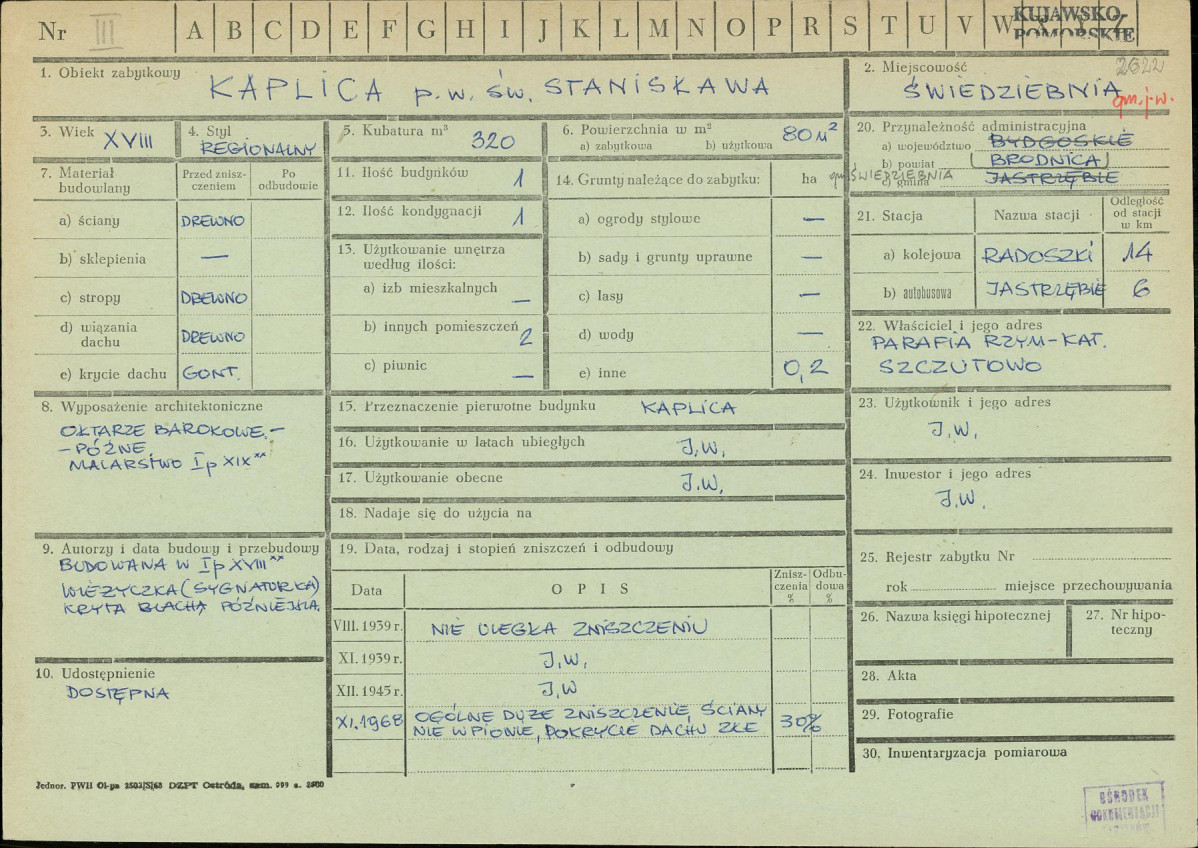 Nr III A B C D E F G H I J K L M N O P R S T U V W Y Z
KUJAWSKO-
POMORSKIE
2622
1. Obiekt zabytkowy
KAPLICA p.w. ŚW. STANISŁAWA
2. Miejscowość
ŚWIEDZIEBNIA
gm. j.w.
3. Wiek
XVIII
4. Styl
REGIONALNY
5. Kubatura m³
320
6. Powierzchnia w m²
a) zabytkowa b) użytkowa
80 m²
20. Przynależność administracyjna
a) województwo BYDGOSKIE
b) powiat (BRODNICA)
gm. ŚWIEDZIEBNIA
c) gmina JASTRZĘBIE
7. Materiał budowlany
Przed zniszczeniem
Po odbudowie
a) ściany DREWNO
b) sklepienia —
c) stropy DREWNO
d) wiązania dachu DREWNO
e) krycie dachu GONT.
11. Ilość budynków 1
12. Ilość kondygnacji 1
13. Użytkowanie wnętrza
według ilości:
a) izb mieszkalnych —
b) innych pomieszczeń 2
c) piwnic —
14. Grunty należące do zabytku: ha
a) ogrody stylowe —
b) sady i grunty uprawne —
c) lasy —
d) wody —
e) inne 0,2
21. Stacja
Nazwa stacji
Odległość
od stacji
w km
a) kolejowa RADOSZKI 14
b) autobusowa JASTRZĘBIE 6
22. Właściciel i jego adres
PARAFIA RZYM-KAT.
SZCZUTOWO
8. Wyposażenie architektoniczne
OŁTARZE BAROKOWE.—
—PÓŹNE.
MALARSTWO I p XIX ͯͯ
15. Przeznaczenie pierwotne budynku KAPLICA
16. Użytkowanie w latach ubiegłych J.W.
17. Użytkowanie obecne J.W.
18. Nadaje się do użycia na
23. Użytkownik i jego adres
J.W.
24. Inwestor i jego adres
J.W.
9. Autorzy i data budowy i przebudowy
BUDOWANA W I p XVIII ͯͯ
WIEŻYCZKA (SYGNATURKA)
KRYTA BLACHĄ PÓŹNIEJSZA.
10. Udostępnienie
DOSTĘPNA
19. Data, rodzaj i stopień zniszczeń i odbudowy
Data
OPIS
Zniszczenia %
Odbudowa %
VIII.1939 r. NIE ULEGŁA ZNISZCZENIU
XI.1939 r. J.W.
XII.1945 r. J.W
XI.1968 OGÓLNE DUŻE ZNISZCZENIE, ŚCIANY
NIE W PIONIE, POKRYCIE DACHU ZŁE
30%
25. Rejestr zabytku Nr
rok miejsce przechowywania
26. Nazwa księgi hipotecznej
27. Nr hipoteczny
28. Akta
29. Fotografie
30. Inwentaryzacja pomiarowa
OŚRODEK
DOKUMENTACJI